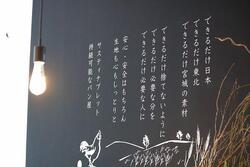 できるだけ日本
できるだけ東北
できるだけ宮城の素材
できるだけ捨てないように
できるだけ必要な分を
できるだけ必要な人に
安心 安全はもちろん
生地も心もしっとりと
サスティナブレッド
持続可能なパン屋